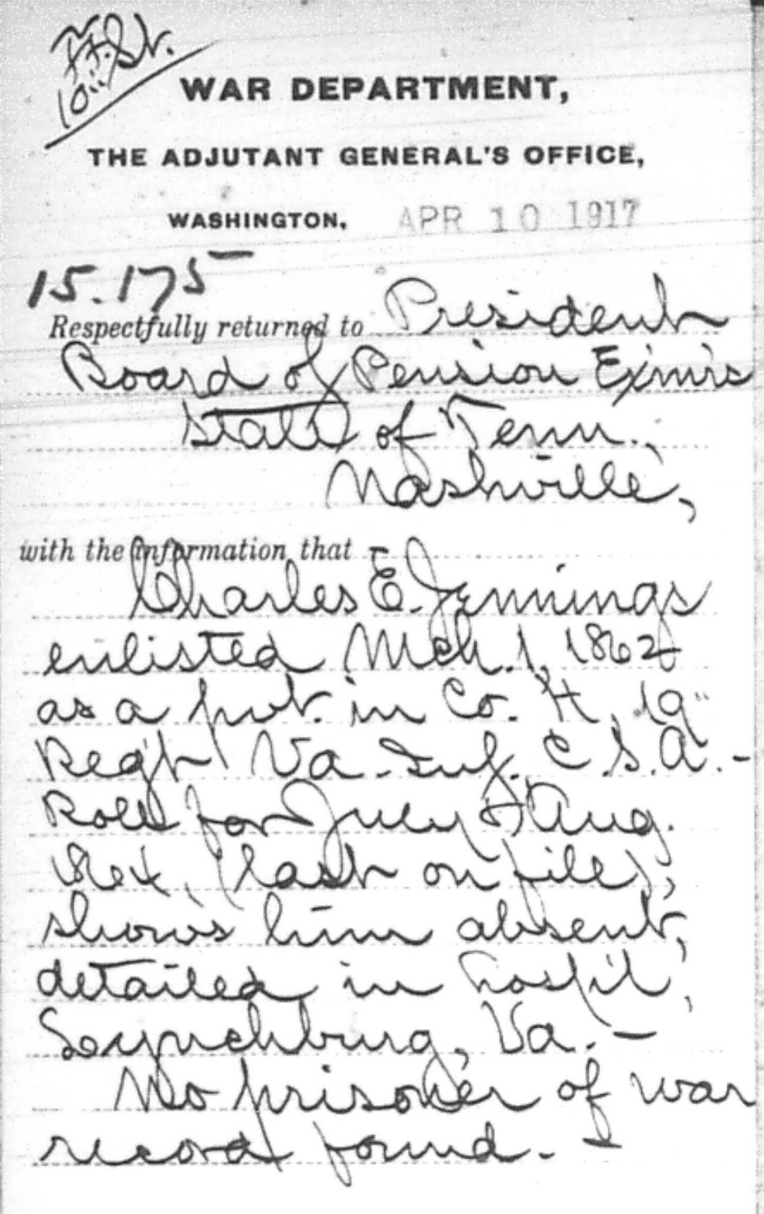 WAR DEPARTMENT,
THE ADJUTANT GENERAL'S OFFICE,
WASHINGTON, APR 10 1917
15.175
Respectfully returned to President
Board of Pension Exmrs
State of Tenn.,
Nashville,
with the information that
Charles E. Jennings
enlisted Mch. 1, 1862
as a pvt. in Co. H, 19"
Regt Va. Inf. C.S.A. -
Roll for July & Aug.
1864, (last on file),
shows him absent,
detailed in hospil,
Lynchburg, Va. -
No prisoner of war
record found. -